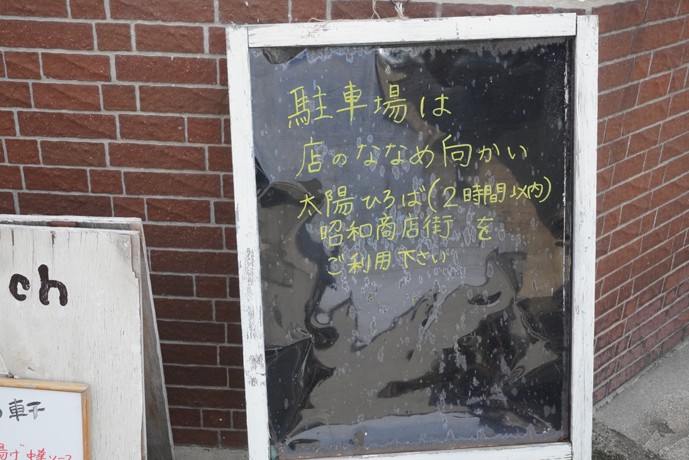 駐車場は
店のななめ向かい
太陽ひろば(2時間以内)
昭和商店街を
ご利用下さい
ch
軒